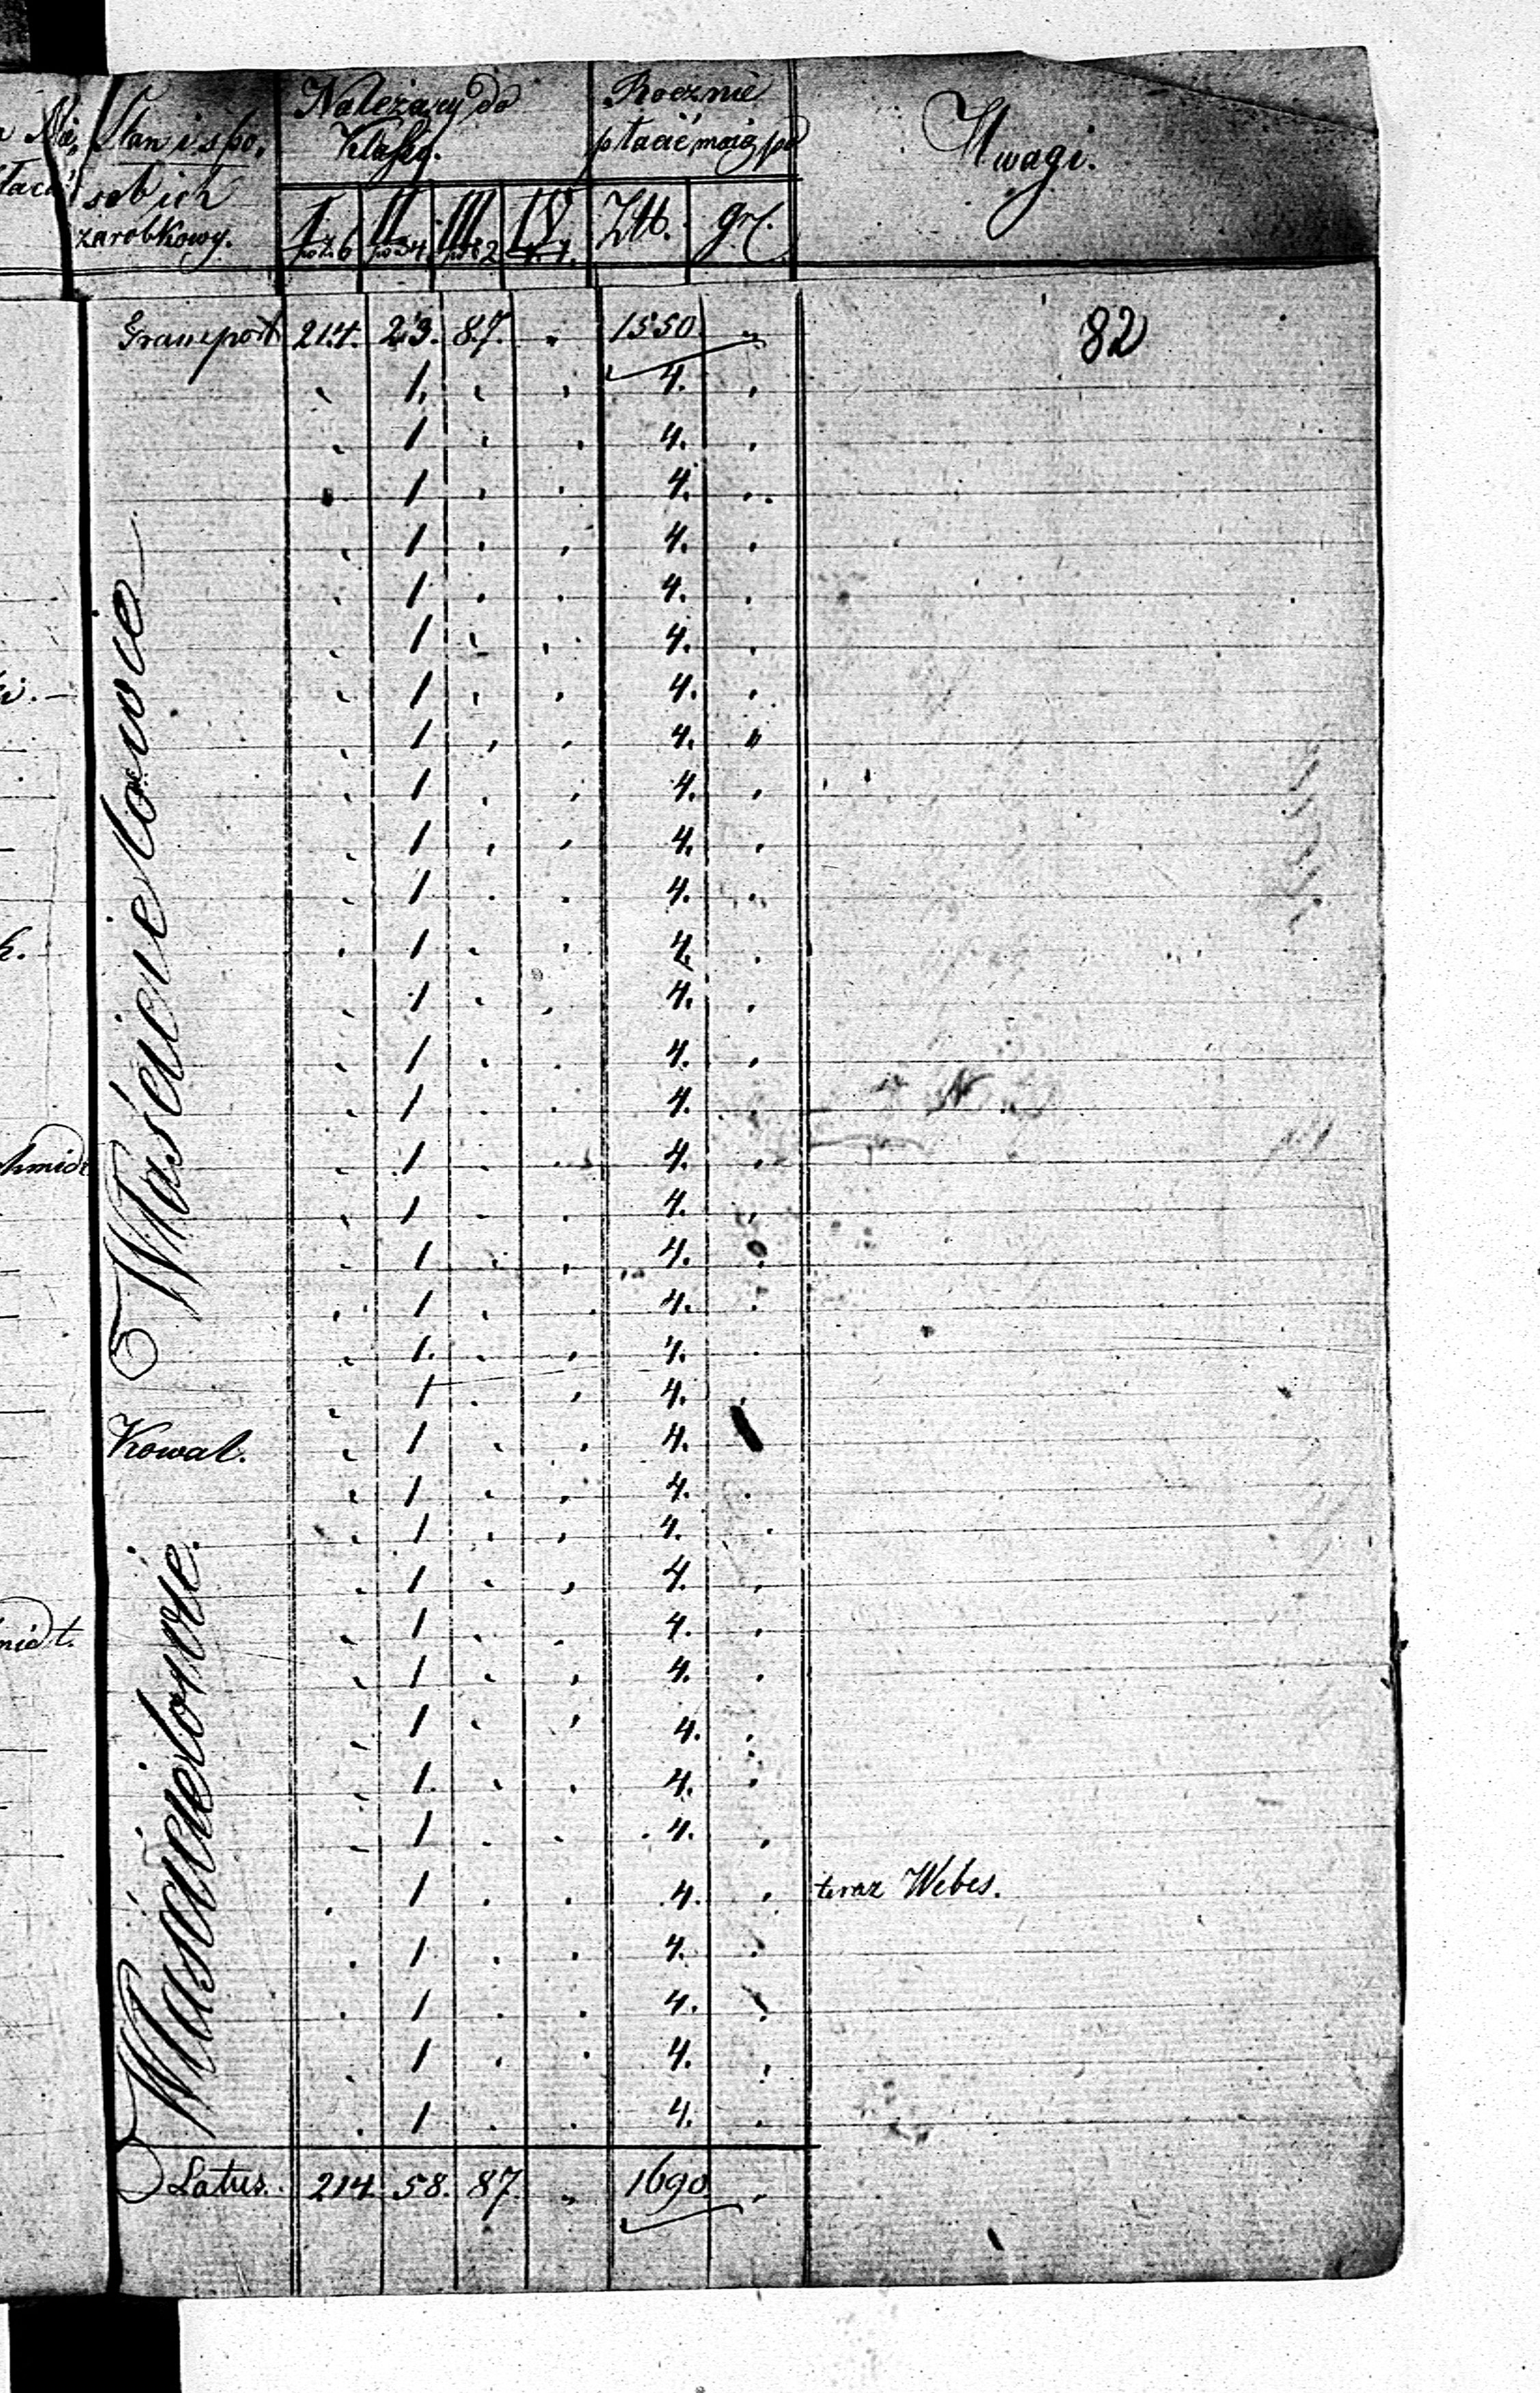 Stan i spo,
sob ich
zarobkowy.
Należący do
Klassy.
I II III IV
po zł. 6 po zł 4. po zł 2
Rocznie
płacić maią po
Złt. gr.
Uwagi.
Transport 214. 23. 87. „ 1550. „ 82
Właścicielowie
1. 4.
1 4.
1 4.
1 4.
1 4.
1 4.
1 4.
1 4. „
1 4.
1 4.
1 4.
1 4.
1 4.
1 4.
1 4.
1 4.
1 4.
1 4.
1 4.
1. 4.
1 4.
Kowal. 1 4.
Właścicielowie.
1 4.
1 4.
1 4.
1 4.
1 4.
1 4.
1. 4.
1 4.
1 4. teraz Webes.
1 4.
1 4.
1 4.
1 4.
Latus. 214. 58. 87. „ 1690 „
hmidt
midt.